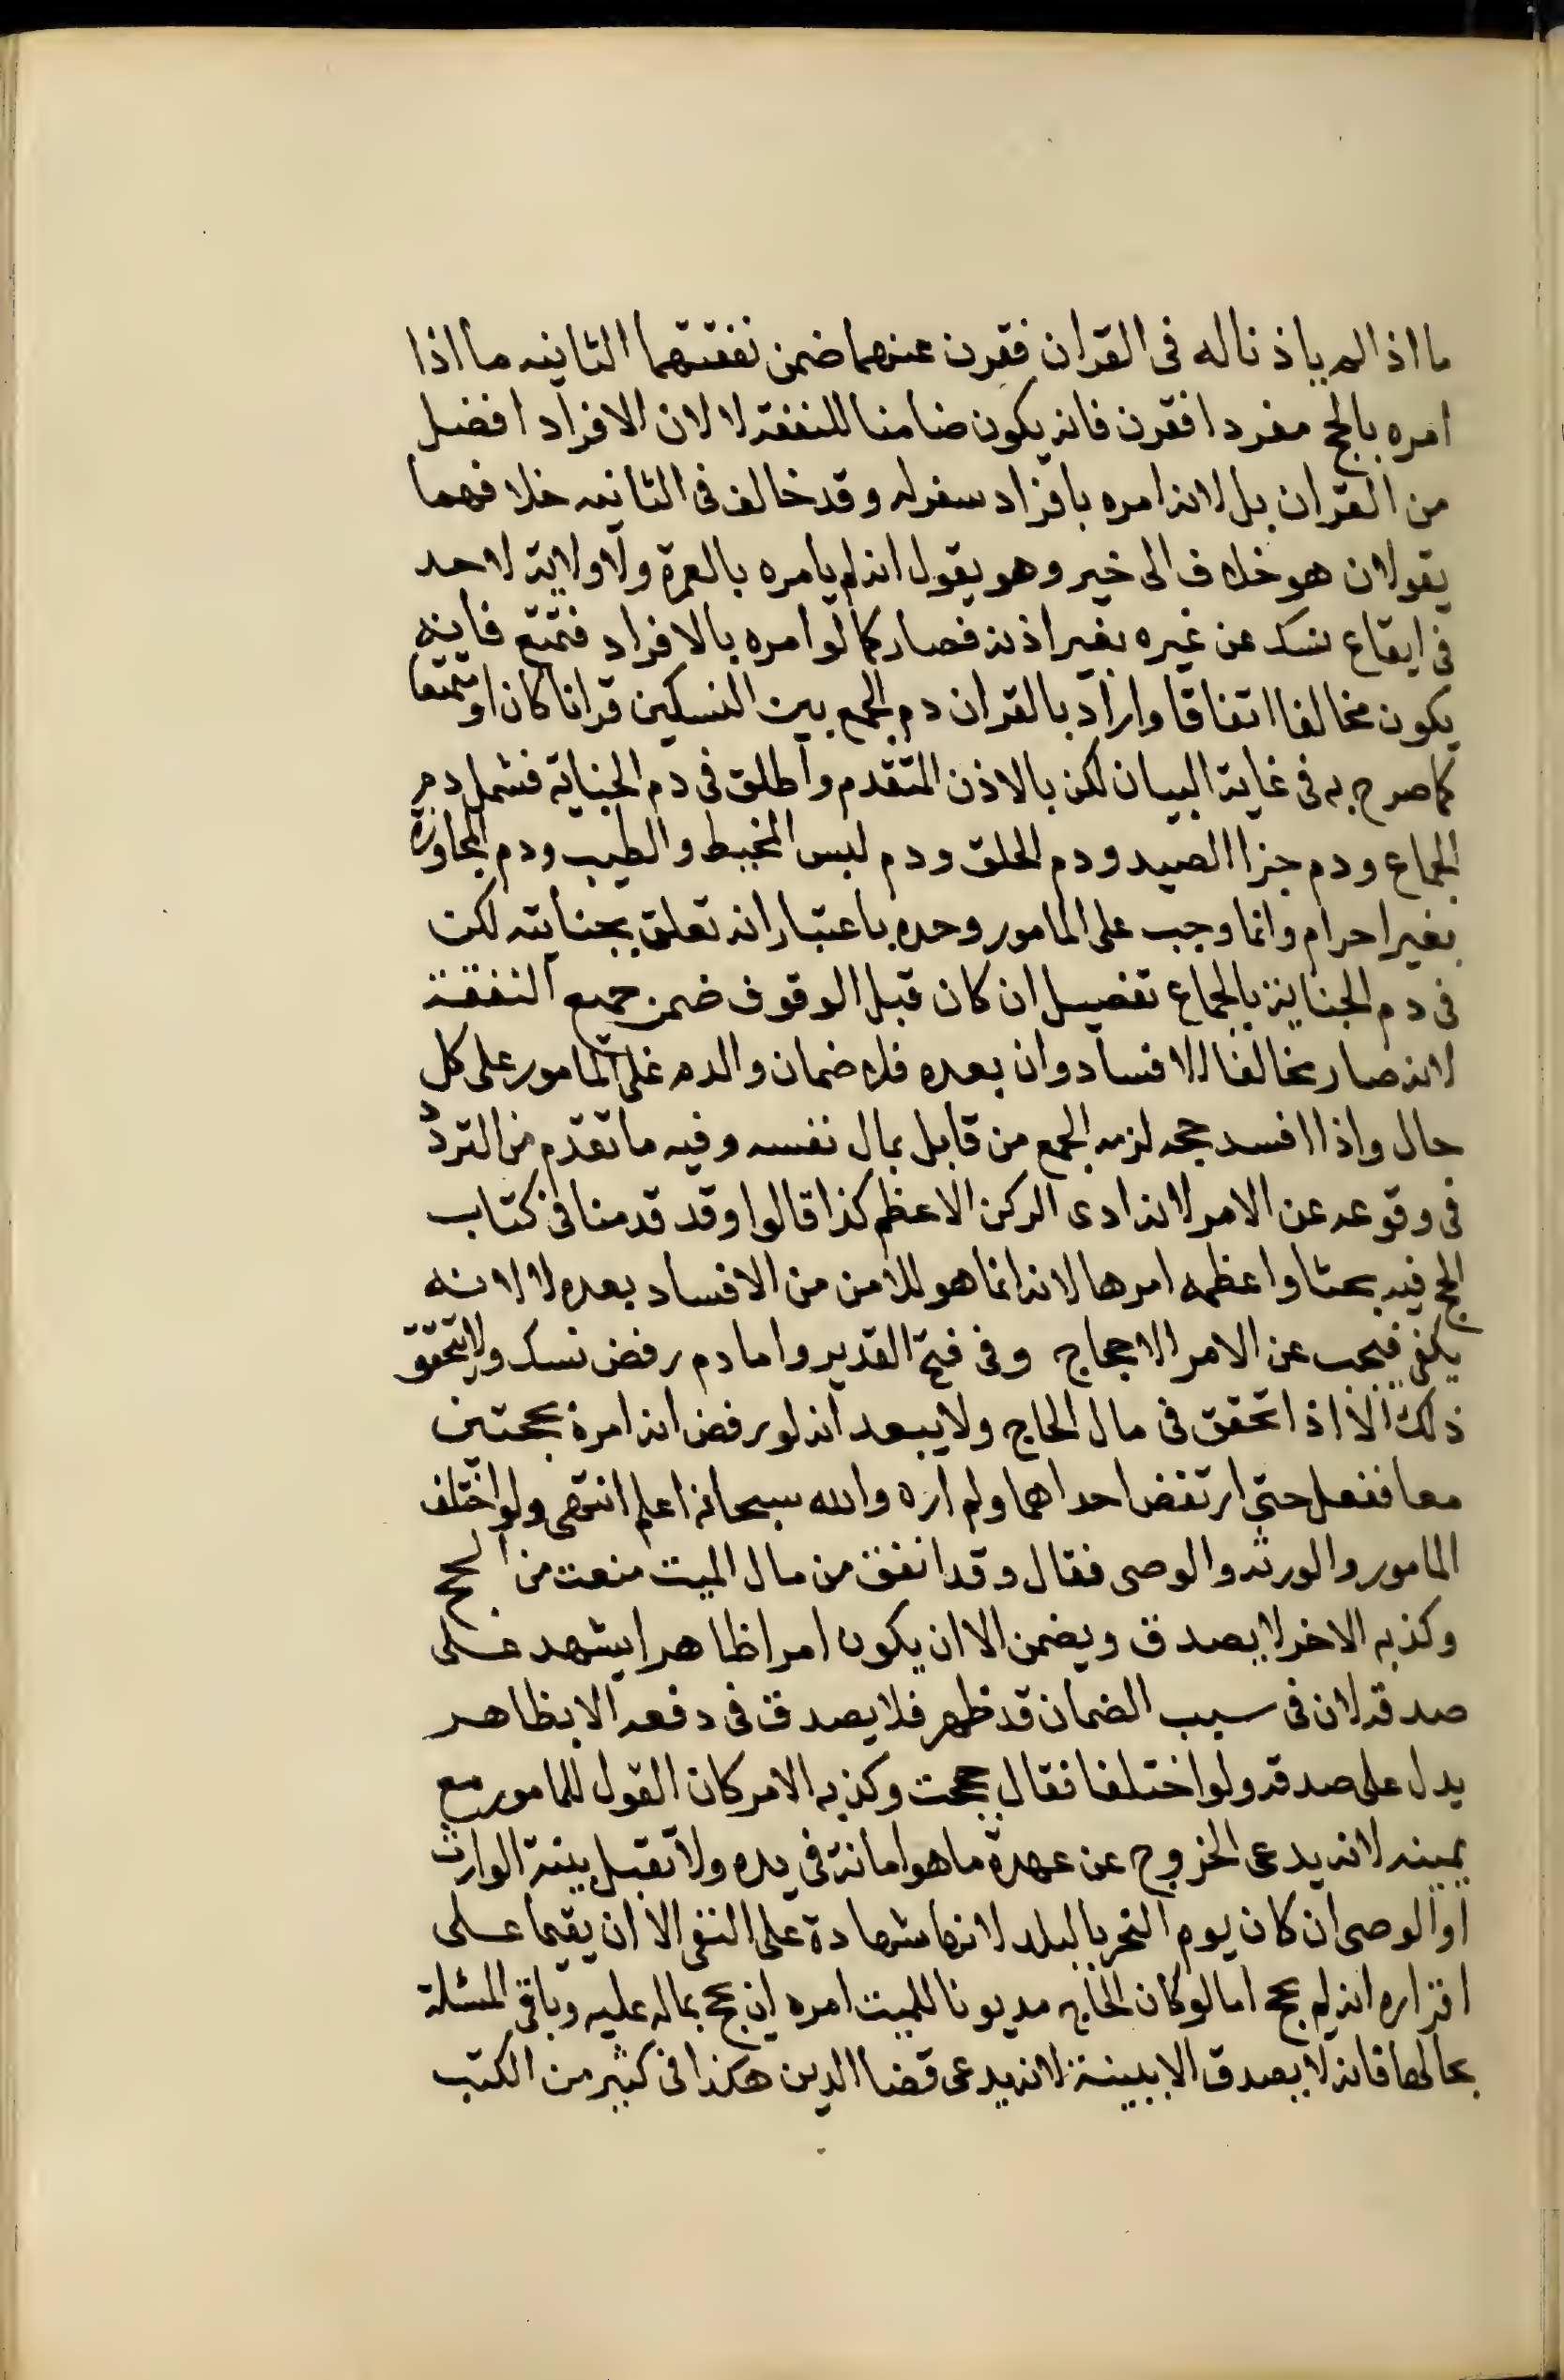 ما اذا لم ياذنا له فى القران فقرن عنهما ضمن نفقتهما الثانيه ما اذا
امره بالحج مفردا فقرن فانه يكون ضامنا للنفقة لا لان الافراد افضل
من القران بل لانه امره بافراد سفر له وقد خالف فى الثانيه خلافهما
يقولان هو خلاف الى خير وهو يقول انه لم يامره بالعمرة ولا ولاية لاحد
فى ايقاع نسك عن غيره بغير اذنه فصار كما لو امره بالافراد فتمتع فاينه
يكون مخالفا اتفاقا واراد بالقران دم الجمع بين النسكين قرانا كان او تمتعا
كما صرح به فى غاية البيان لكن بالاذن المتقدم واطلق فى دم الجناية فشمل دم
الجماع ودم جزا الصيد ودم الحلق ودم لبس المخيط والطيب ودم المجاوزة
بغير احرام وانما وجب على المامور وحده باعتبار انه تعلق بجنايته لكن
فى دم الجناية بالجماع تفصيل ان كان قبل الوقوف ضمن جميع النفقة
لانه صار مخالفا للافساد وان بعده فلا ضمان والدم على المامور على كل
حال واذا افسد حجه لزمه الجمع من قابل بمال نفسه وفيه ما تقدم من التردد
فى وقوعه عن الامر لانه ادى الركن الاعظم كذا قالوا وقد قدمنا فى كتاب
الحج فيه بحثا واعظمه امرها لانه انما هو للامن من الافساد بعده لا لانه
يكفى فيجب عن الامر الاحجاج وفى فتح القدير واما دم رفض نسك ولا يتحقق
ذلك الا اذا تحقق فى مال الحاج ولا يبعد انه لو رفض انه امرة بحجتين
معا ففعل حتى ارتفض احداهما ولم اره والله سبحانه اعلم انتهى ولو اختلف
المامور والورثه والوصى فقال وقد انفق من مال الميت منعت من الحج
وكذبه الاخر لا يصدق ويضمن الا ان يكون امرا ظاهرا يشهد على
صدقه لان فى سبب الضمان قد ظهر فلا يصدق فى دفعه الا بظاهر
يدل على صدقه ولو اختلفا فقال حججت وكذبه الامر كان القول للمامور مع
يمينه لانه يدعى الخروج عن عهدة ما هو امانة فى يده ولا تقبل بينة الوارث
او الوصى ان كان يوم النحر بالبلد لانها شهادة على النفى الا ان يقيما على
اقراره انه لم يحج اما لو كان الحاج مديونا للميت امره ان يحج بماله عليه وباقى المسئلة
بحالها فانه لا يصدق الا ببينة لانه يدعى قضا الدين هكذا فى كثير من الكتب